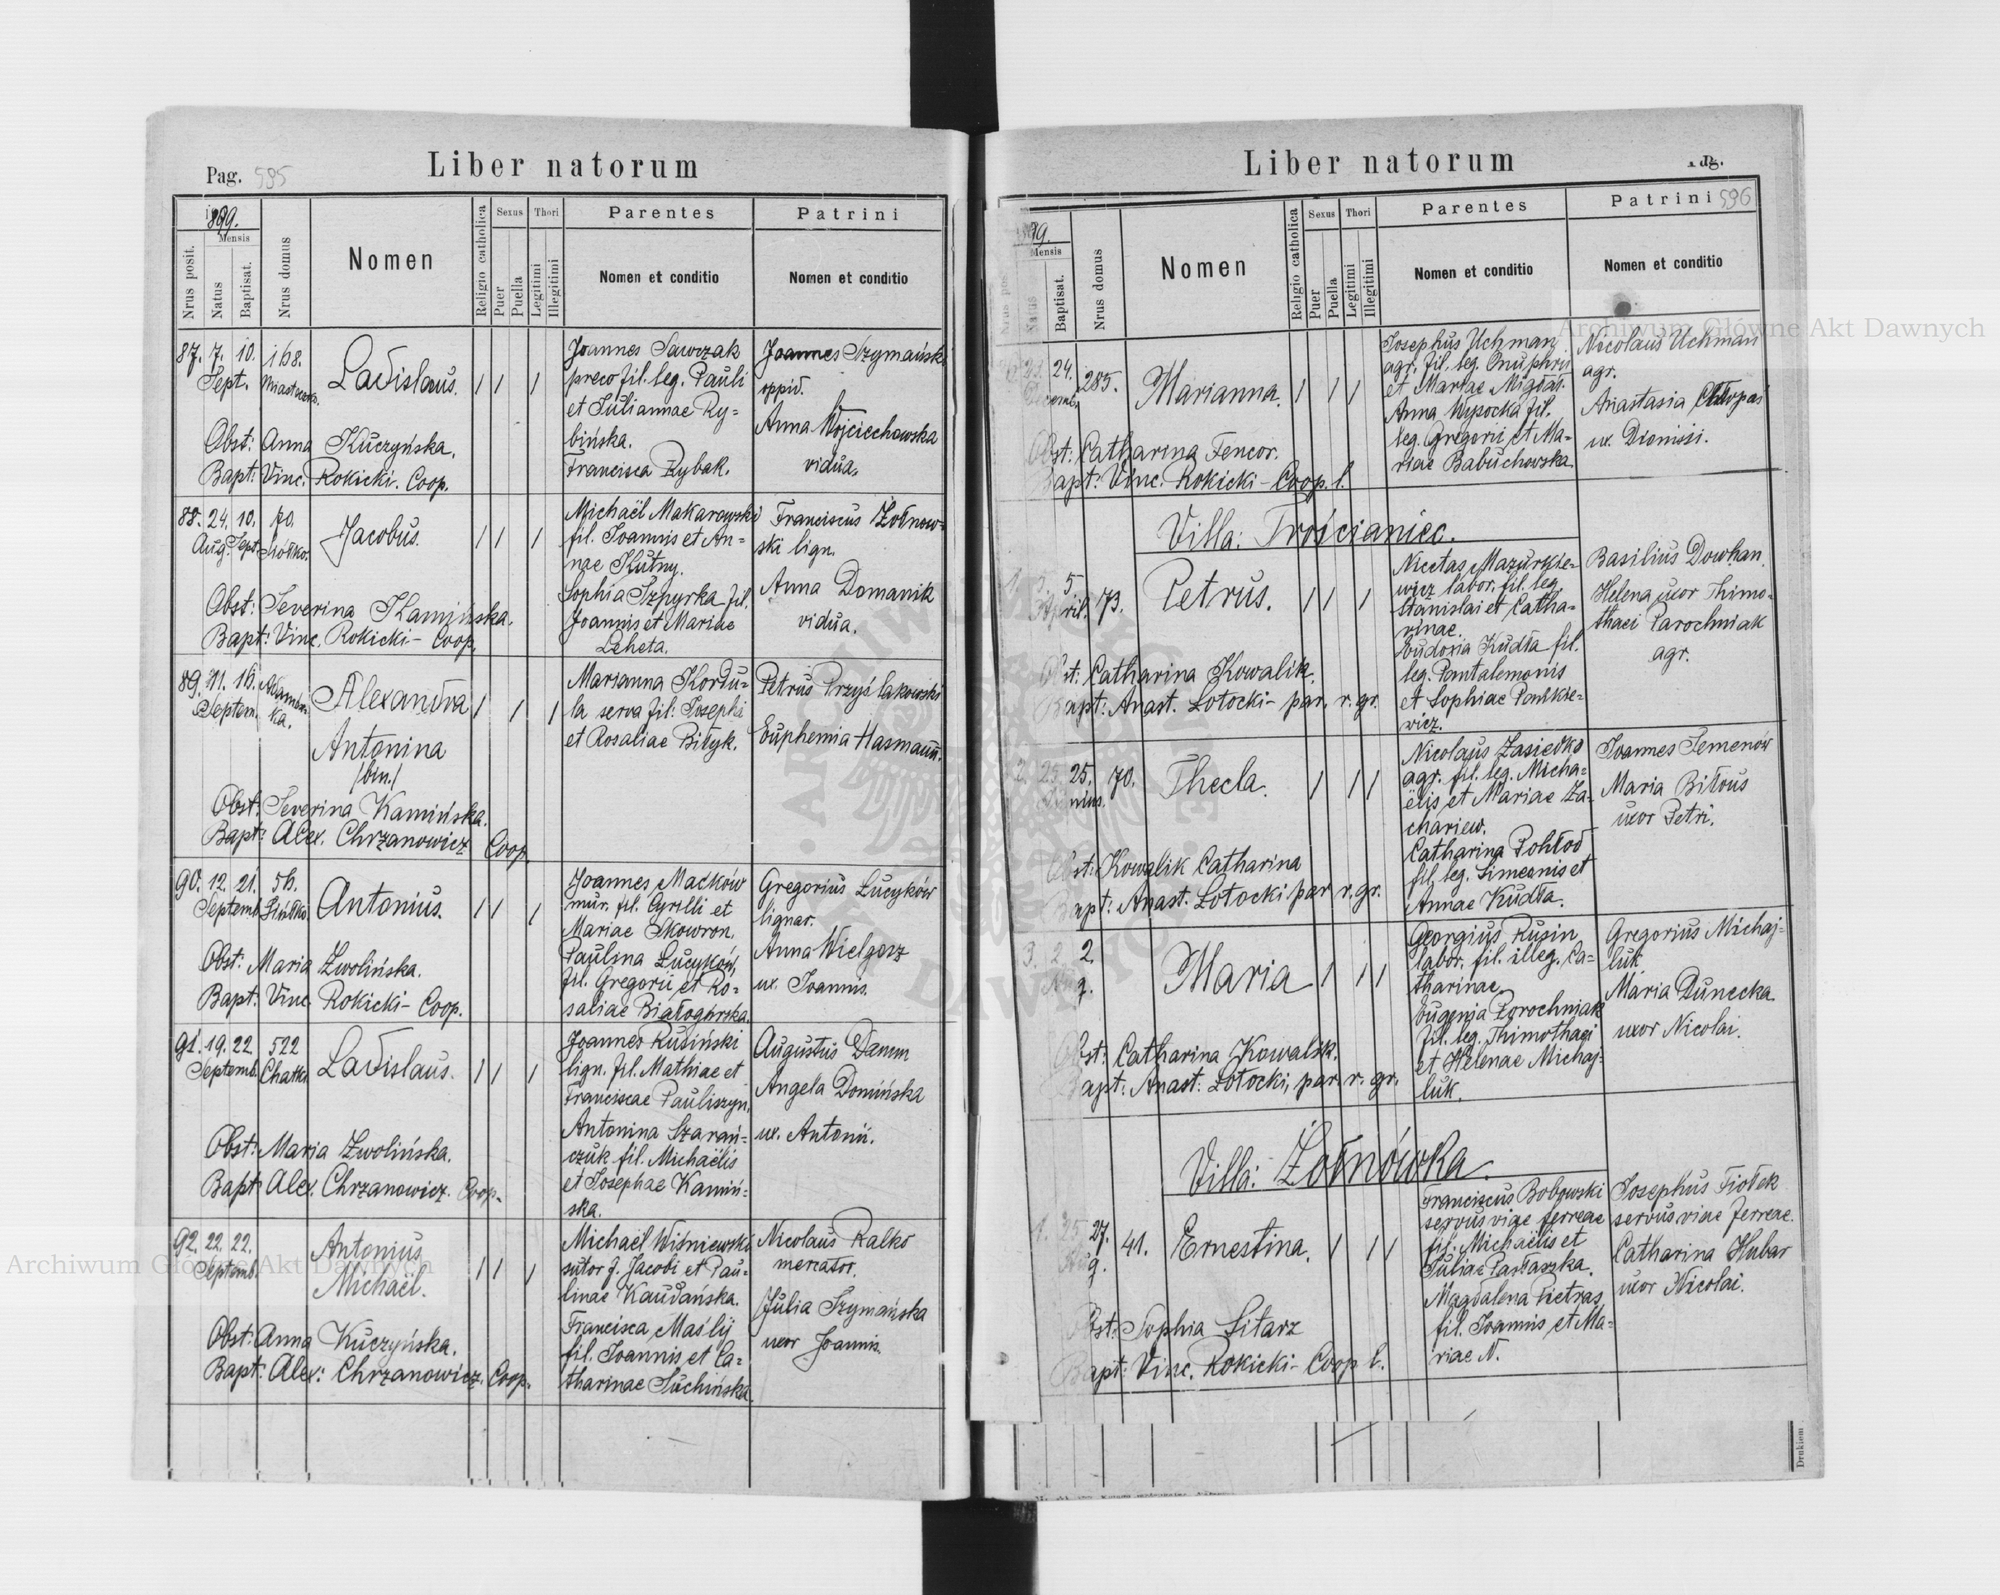 Pag. 595
Liber natorum
1899.
Mensis
Nrus posit.
Natus
Baptisat.
Nrus domus
Nomen
Religio catholica
Sexus
Puer
Puella
Thori
Legitimi
Illegitimi
Parentes
Nomen et conditio
Patrini
Nomen et conditio
87. 7. 10. 168.
Sept. Miasteczko.
Ladislaus.
Joannes Sawczak
preco fil. leg. Pauli
et Juliannae Ry=
bińska.
Francisca Rybak.
Joannes Szymański
oppid.
Anna Wojciechowska
vidua.
Obst: Anna Kuczyńska.
Bapt: Vinc. Rokicki. Coop.
88. 24. 10. 70.
Aug. Sept. Siółko.
Jacobus.
Michaël Makarowski
fil. Joannis et An=
nae Kutny.
Sophia Szpyrka fil.
Joannis et Mariae
Leheta.
Franciscus Żołnow=
ski lign.
Anna Domanik
vidua.
Obst: Severina Kamińska.
Bapt: Vinc. Rokicki - Coop.
89. 11. 16.
Septem.
Alexandra
Antonina
/bin./
Marianna Kordu=
la serva fil. Josephi
et Rosaliae Bityk.
Petrus Przyślakowski
Euphemia Hasmann.
Obst: Severina Kamińska.
Bapt: Alex. Chrzanowicz Coop.
90. 12. 21. 56.
Septemb. Siółko
Antonius.
Joannes Maćków
mur. fil. Cyrilli et
Mariae Skowron.
Paulina Lucyków,
fil. Gregorii et Ro=
saliae Białogórska.
Gregorius Lucyków
lignar.
Anna Wielgosz
ux. Joannis.
Obst: Maria Zwolińska.
Bapt: Vinc. Rokicki - Coop.
91. 19. 22. 522
Septemb. Chatki
Ladislaus.
Joannes Rusiński
lign. fil. Mathiae et
Franciscae Pauliszyn.
Antonina Szarań=
czuk fil. Michaëlis
et Josephae Kamiń=
ska.
Augustus Damm
Angela Domińska
ux. Antonii.
Obst: Maria Zwolińska.
Bapt: Alex. Chrzanowicz. Coop.
92. 22. 22.
Septemb.
Antonius
Michaël.
Michaël Wiśniewski
sutor f. Jacobi et Pau=
linae Kaudańska.
Francisca Maślij
fil. Joannis et Ca=
tharinae Suchińska.
Nicolaus Kalko
mercator.
Julia Szymańska
uxor Joannis.
Obst: Anna Kuczyńska.
Bapt: Alex: Chrzanowicz. Coop.
Liber natorum
Pag.
596
99.
Mensis
Natus
Baptisat.
Nrus domus
Nomen
Religio catholica
Sexus
Puer
Puella
Thori
Legitimi
Illegitimi
Parentes
Nomen et conditio
Patrini
Nomen et conditio
24. 285.
Marianna.
Josephus Uchman
agr. fil. leg. Onuphrii
et Mariae Migdał.
Anna Wysocka fil.
leg. Gregorii et Ma=
riae Babuchowska.
Nicolaus Uchman
agr.
Anastasia Chłopas
ux. Dionisii.
Obst: Catharina Fencor.
Bapt: Vinc. Rokicki - Coop. l.
Villa: Trościaniec.
5
April. 73.
Petrus.
Nicetas Mazurkie=
wicz labor. fil. leg.
Stanislai et Catha=
rinae.
Eudoxia Kudła fil.
leg. Pantalemonis
et Sophiae Pańkie=
wicz.
Basilius Dowhan.
Helena uxor Thimo=
thaei Parochniak
agr.
Obst: Catharina Kowalik.
Bapt: Anast. Lotocki - par. r. gr.
2. 25. 25. 70.
Thecla.
Nicolaus Zasiedko
agr. fil. leg. Micha=
ëlis et Mariae Za=
chariew.
Catharina Pohłod
fil. leg. Simeonis et
Annae Kudła.
Joannes Semenów
Maria Biłous
uxor Petri.
Obst: Kowalik Catharina
Bapt: Anast. Lotocki par. r. gr.
3. 2. 2.
Aug.
Maria
Georgius Rusin
labor. fil. illeg. Ca=
tharinae.
Eugenia Porochniak
fil. leg. Thimothaei
et Helenae Michaj=
luk.
Gregorius Michaj=
luk
Maria Dunecka
uxor Nicolai.
Obst: Catharina Kowalik.
Bapt: Anast: Lotocki, par. r. gr.
Villa: Żołnówka.
1. 25 27. 41.
Aug.
Ernestina.
Franciscus Bobowski
servus viae ferreae
fil. Michaëlis et
Juliae Parłaszka.
Magdalena Pietras
fil. Joannis et Ma=
riae N.
Josephus Fiołek
servus viae ferreae.
Catharina Hubar
uxor Nicolai.
Obst: Sophia Sitarz
Bapt: Vinc. Rokicki - Coop l.
Drukiem
Archiwum Główne Akt Dawnych
Archiwum Główne Akt Dawnych